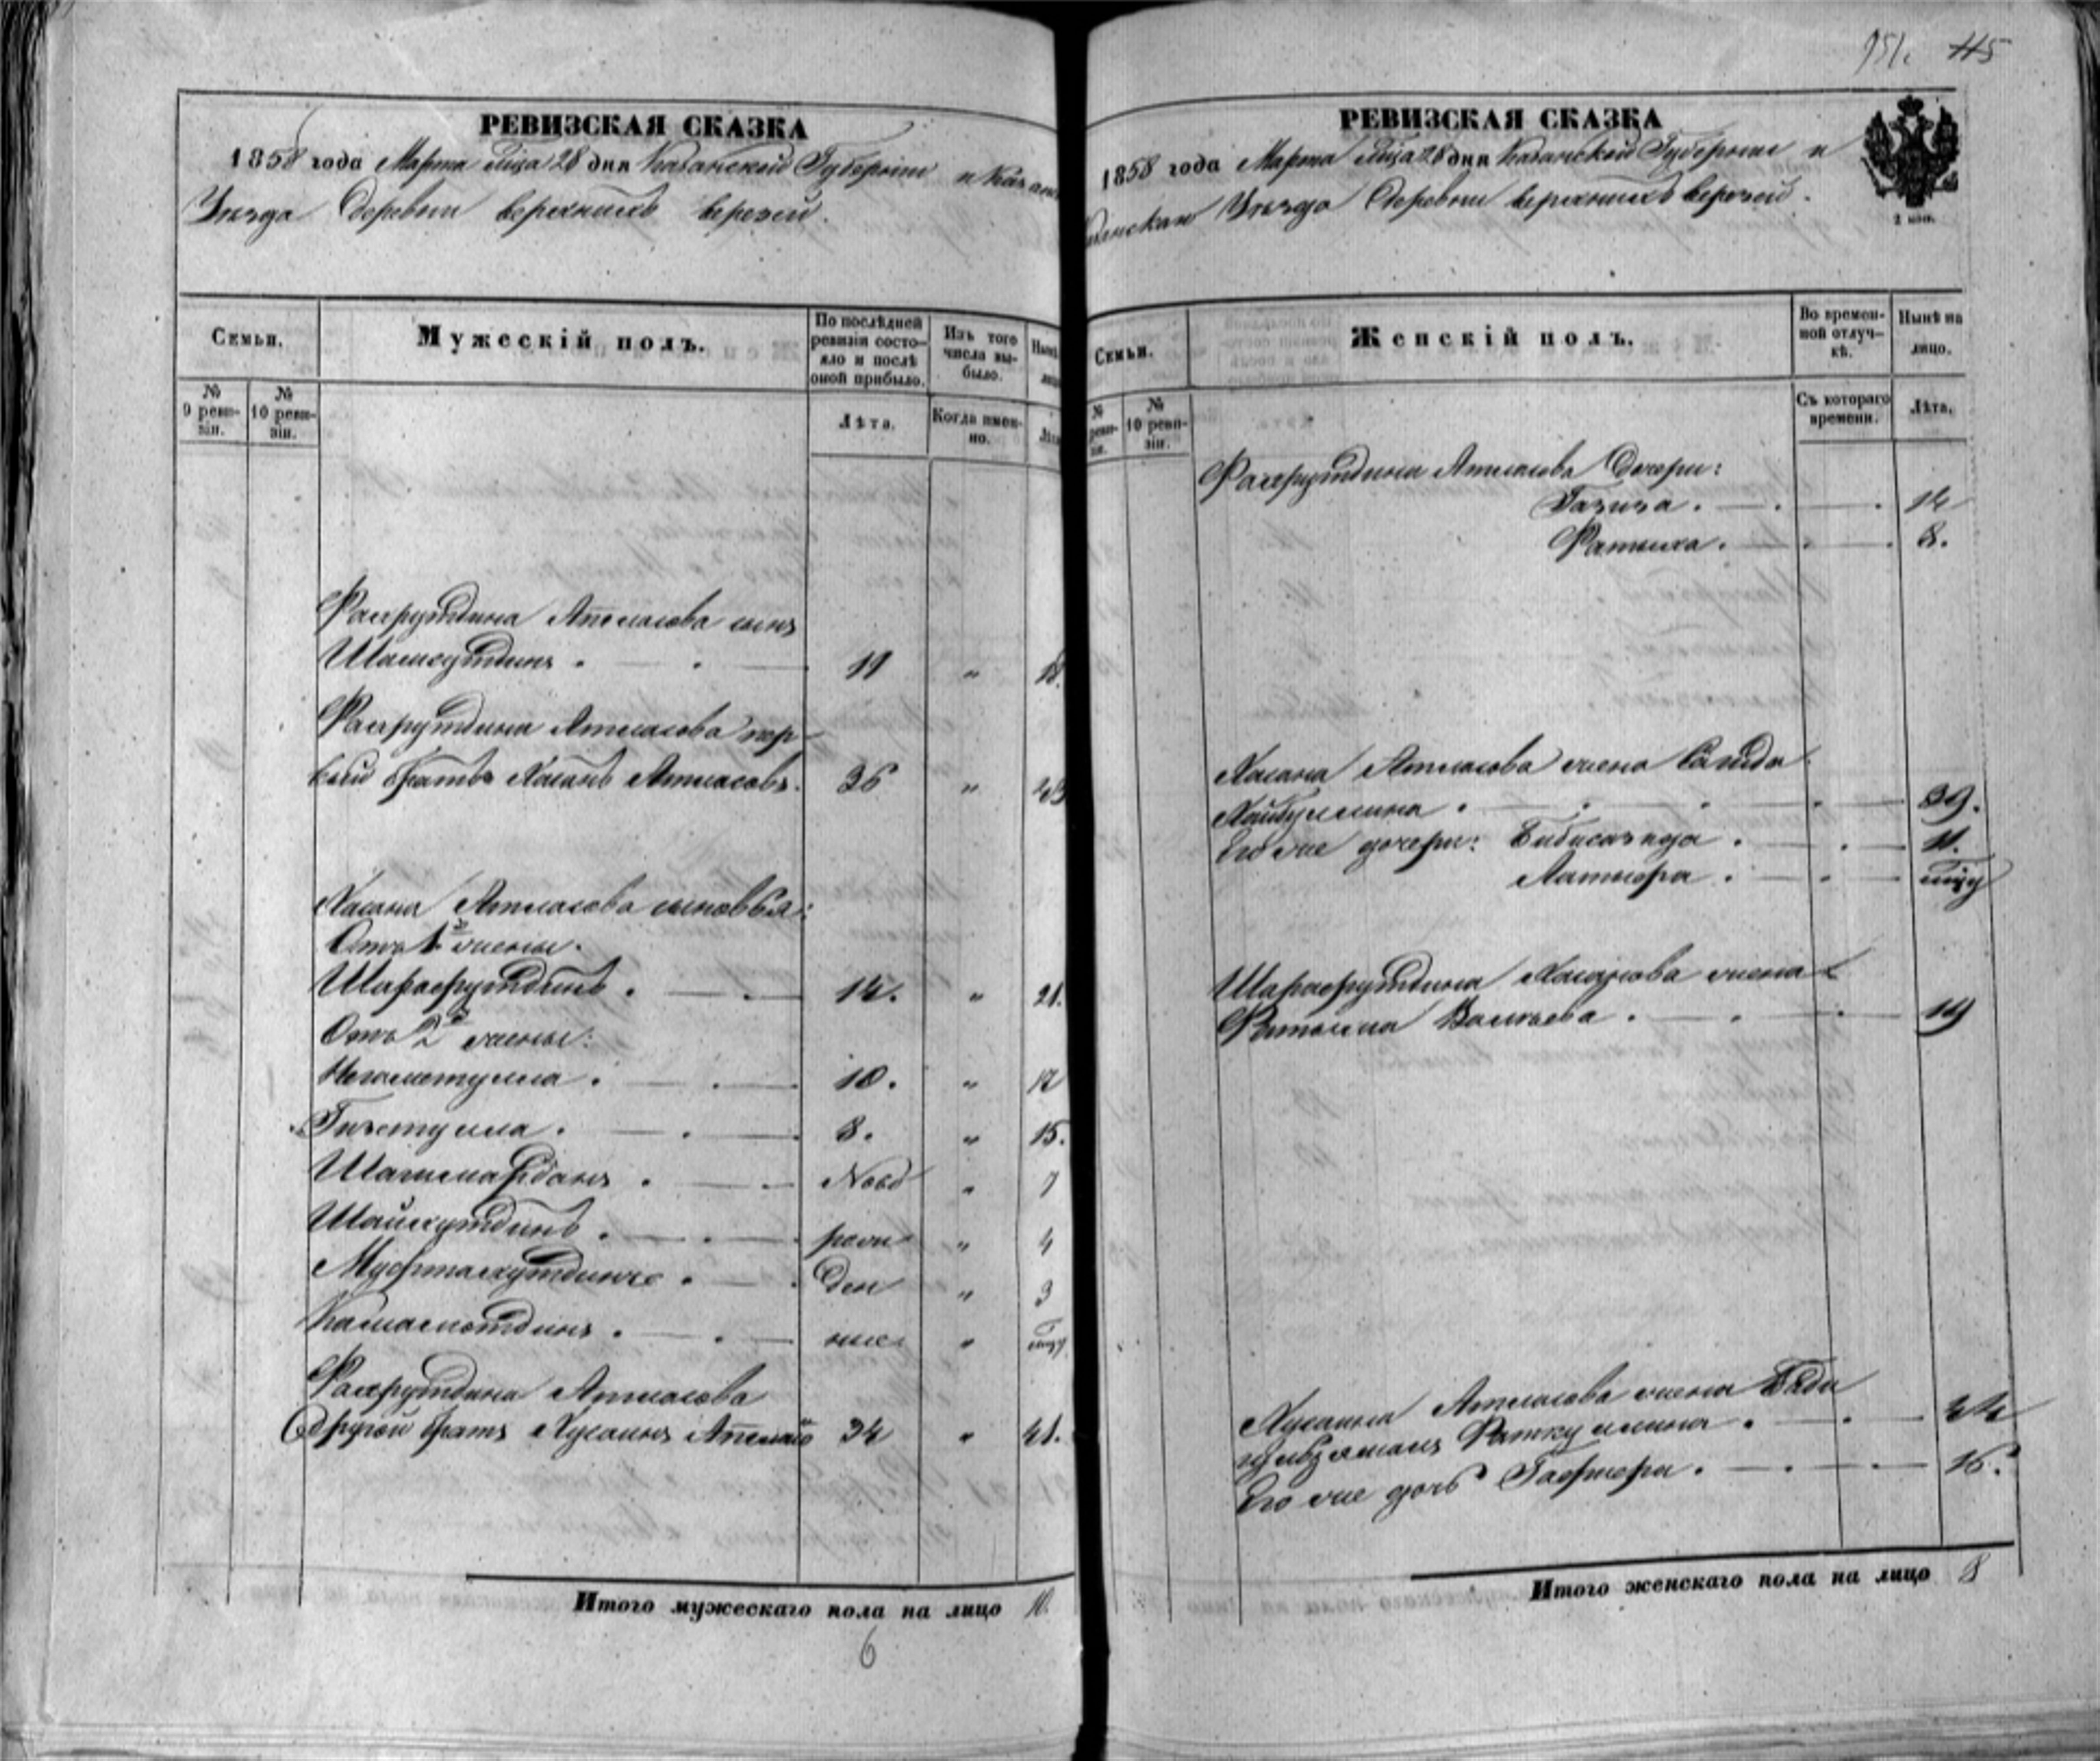 151. 115
РЕВИЗСКАЯ СКАЗКА
1858 года Марта м͠ца 28 дня Казанской Губернiи и Казан
Уѣзда Деревни верхнихъ верезей.
Семьи.
Мужескій полъ.
По послѣдней ревизіи состояло и послѣ оной прибыло.
Изъ того числа выбыло.
Нынѣ
лицо
№ 9 ревизіи.
№ 10 ревизіи.
Лѣта.
Когда именно.
Лѣта
Фахрутдина Атласова сынъ
Шамсутдинъ . 11 " 18.
Фахрутдина Атласова пер
вый братъ Хасанъ Атласовъ. 36 " 43
Хасана Атласова сыновья:
Отъ 1й жены.
Шарафутдинъ . 14. " 21.
Отъ 2й жены:
Негаметулла . 10. " 17
Гизетулла . 8. " 15.
Шагимарданъ . Ново " 7
Шайхутдинъ . рож " 4
Мифтахутдинъ . ден " 3
Камалетдинъ . ные "
Фахрутдина Атласова
другой братъ Хусаинъ Атласовъ 34 " 41.
Итого мужескаго пола на лицо 10.
6
РЕВИЗСКАЯ СКАЗКА
1858 года Марта м͠ца 28 дня Казанской Губернiи и
Уѣзда Деревни верхнихъ верезей.
2 коп.
Семьи.
Женскій полъ.
Во временной отлучкѣ.
Нынѣ на лицо.
№ реви-зіи.
№ 10 ревизіи.
Съ котораго времени.
Лѣта.
Фахрутдина Атласова Дочери:
Газиза . 14
Фатыха . 8.
Хасана Атласова жена Саида
Хайбуллина . 39.
Его же дочери: Бибисагида . 11.
Латифа .
Шарафутдина Хасанова жена
Фатыма Валитева . 19
Хусаина Атласова жена Бади
Фаткуллина . 44
Его же дочь Гафифа . 16.
Итого женскаго пола на лицо 8